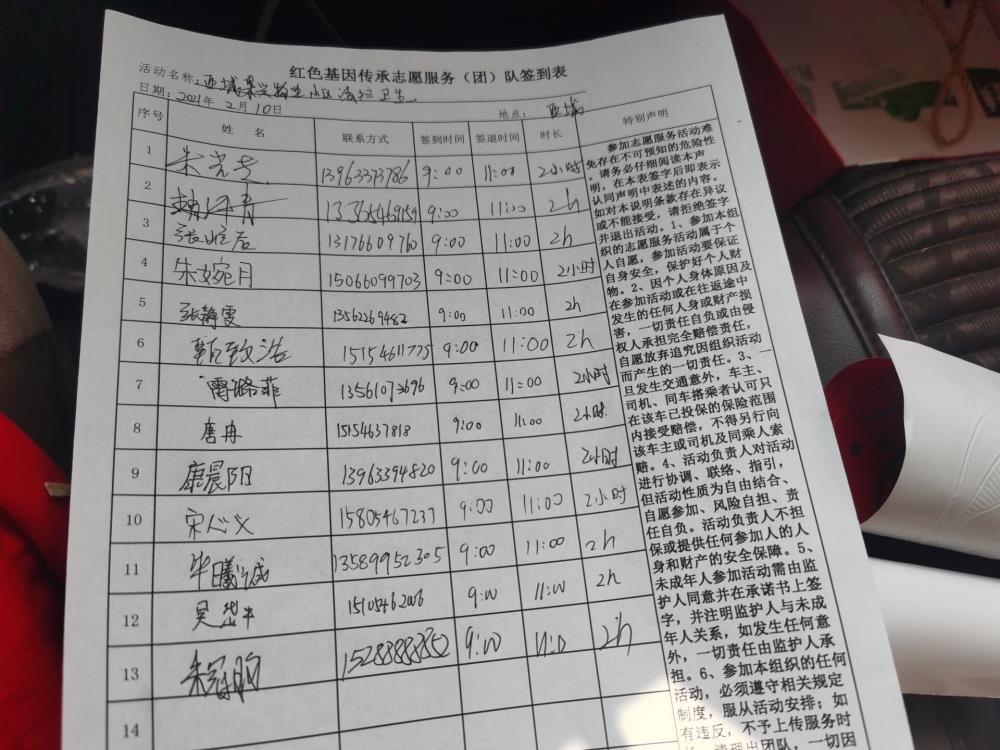 红色基因传承志愿服务（团）队签到表
活动名称：西城 小区 卫生
日期：2021年2月10日 地点：西城
序号 姓名 联系方式 签到时间 签退时间 时长 特别声明
1 朱 13963373786 9:00 11:00 2小时
2 9:00 11:00 2h
3 13176609760 9:00 11:00 2h
4 朱婉月 15066099703 9:00 11:00 2小时
5 张静雯 13562269482 9:00 11:00 2h
6 甄致浩 15154611775 9:00 11:00 2h
7 雷璐菲 13561073696 9:00 11:00 2小时
8 唐冉 15154637818 9:00 11:00 2小时
9 康晨阳 13963394820 9:00 11:00 2小时
10 宋心义 15805467237 9:00 11:00 2小时
11 毕曦诚 13589952305 9:00 11:00 2h
12 吴 9:00 11:00 2h
13 朱 9:00 2h
14
参加志愿服务活动难
免存在不可预知的危险性
，请务必仔细阅读本声
明，在本表签字后即表示
认同声明中表述的内容。
如对本说明条款存在异议
或不能接受，请拒绝签字
并退出活动。1、参加本组
织的志愿服务活动属于个
人自愿，参加活动要保证
自身安全，保护好个人财
物。2、因个人身体原因及
在参加活动或在往返途中
发生的任何人身或财产损
害，一切责任自负或由侵
权人承担完全赔偿责任，
自愿放弃追究因组织活动
而产生的一切责任。3、一
旦发生交通意外，车主、
司机、同车搭乘者认可只
在该车已投保的保险范围
内接受赔偿，不得另行向
该车主或司机及同乘人索
赔。4、活动负责人对活动
进行协调、联络、指引，
但活动性质为自由结合、
自愿参加、风险自担、责
任自负。活动负责人不担
保或提供任何参加人的人
身和财产的安全保障。5、
未成年人参加活动需由监
护人同意并在承诺书上签
字，并注明监护人与未成
年人关系，如发生任何意
外，一切责任由监护人承
担。6、参加本组织的任何
活动，必须遵守相关规定
制度，服从活动安排；如
有违反，不予上传服务时
长，请退出团队，一切因